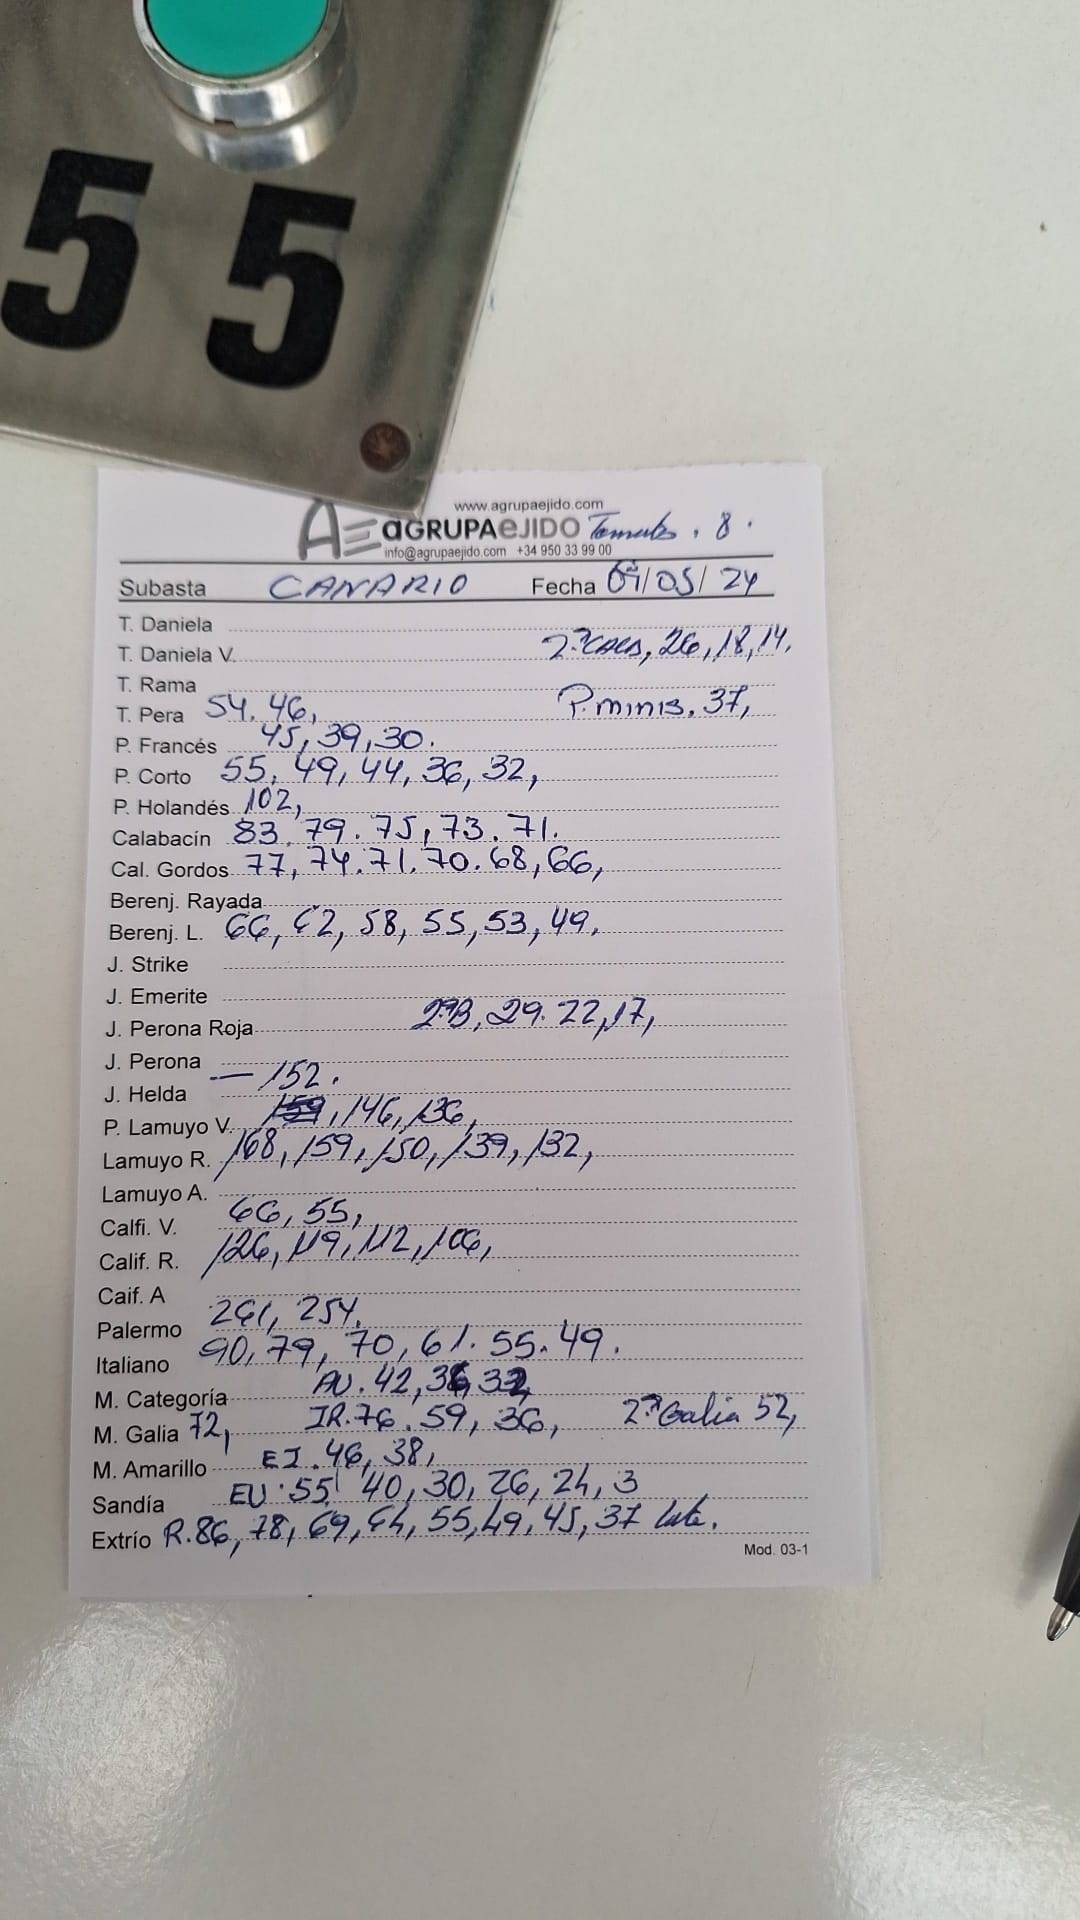 55
www.agrupaejido.com
AE aGRUPAeJIDO Tomates. 8.
info@agrupaejido.com +34 950 33 99 00
Subasta CANARIO Fecha 09/05/24
T. Daniela
T. Daniela V. 2ªCAES, 26, 18, 14.
T. Rama
T. Pera 54. 46, P. minis. 37,
P. Francés 45, 39, 30.
P. Corto 55, 49, 44, 36, 32,
P. Holandés 102,
Calabacín 83. 79. 75, 73. 71.
Cal. Gordos 77, 74. 71. 70. 68, 66,
Berenj. Rayada
Berenj. L. 66, 62, 58, 55, 53, 49,
J. Strike
J. Emerite
J. Perona Roja 2ªB, 29. 22, 17,
J. Perona
J. Helda — 152.
P. Lamuyo V. 159, 146, 136,
Lamuyo R. 168, 159, 150, 139, 132,
Lamuyo A.
Calfi. V. 66, 55,
Calif. R. 126, 119, 112, 106,
Caif. A
Palermo 261, 254.
Italiano 90, 79, 70, 61. 55. 49.
M. Categoría AU. 42, 36, 32,
M. Galia 72, IR. 76. 59, 36, 2ª Galia 52,
M. Amarillo EJ. 46, 38,
Sandía EU. 55, 40, 30, 26, 24, 3
Extrío R. 86, 78, 69, 64, 55, 49, 45, 37
Mod. 03-1